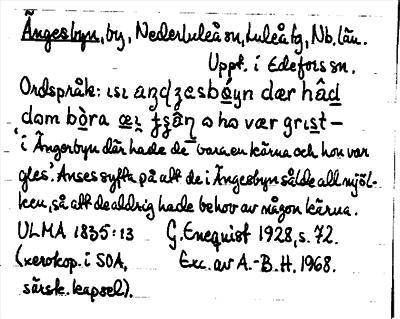 Ängesbyn, by, Nederluleå sn, Luleå tg, Nb. län.
Uppt. i Edefors sn.
Ordspråk: ısı aŋʤesbýn dær hâd
dom bòra œı̨ ʄʂâɳ o ho vær grıst –
'i Ängesbyn där hade de bara en kärna och hon var
gles'. Anses syfta på att de i Ängesbyn sålde all mjöl-
ken, så att de aldrig hade behov av någon kärna.
ULMA 1835:13 G. Enequist 1928, s. 72.
(xerokop. i SOA, Exc. av A.-B. H. 1968.
särsk. kapsel).